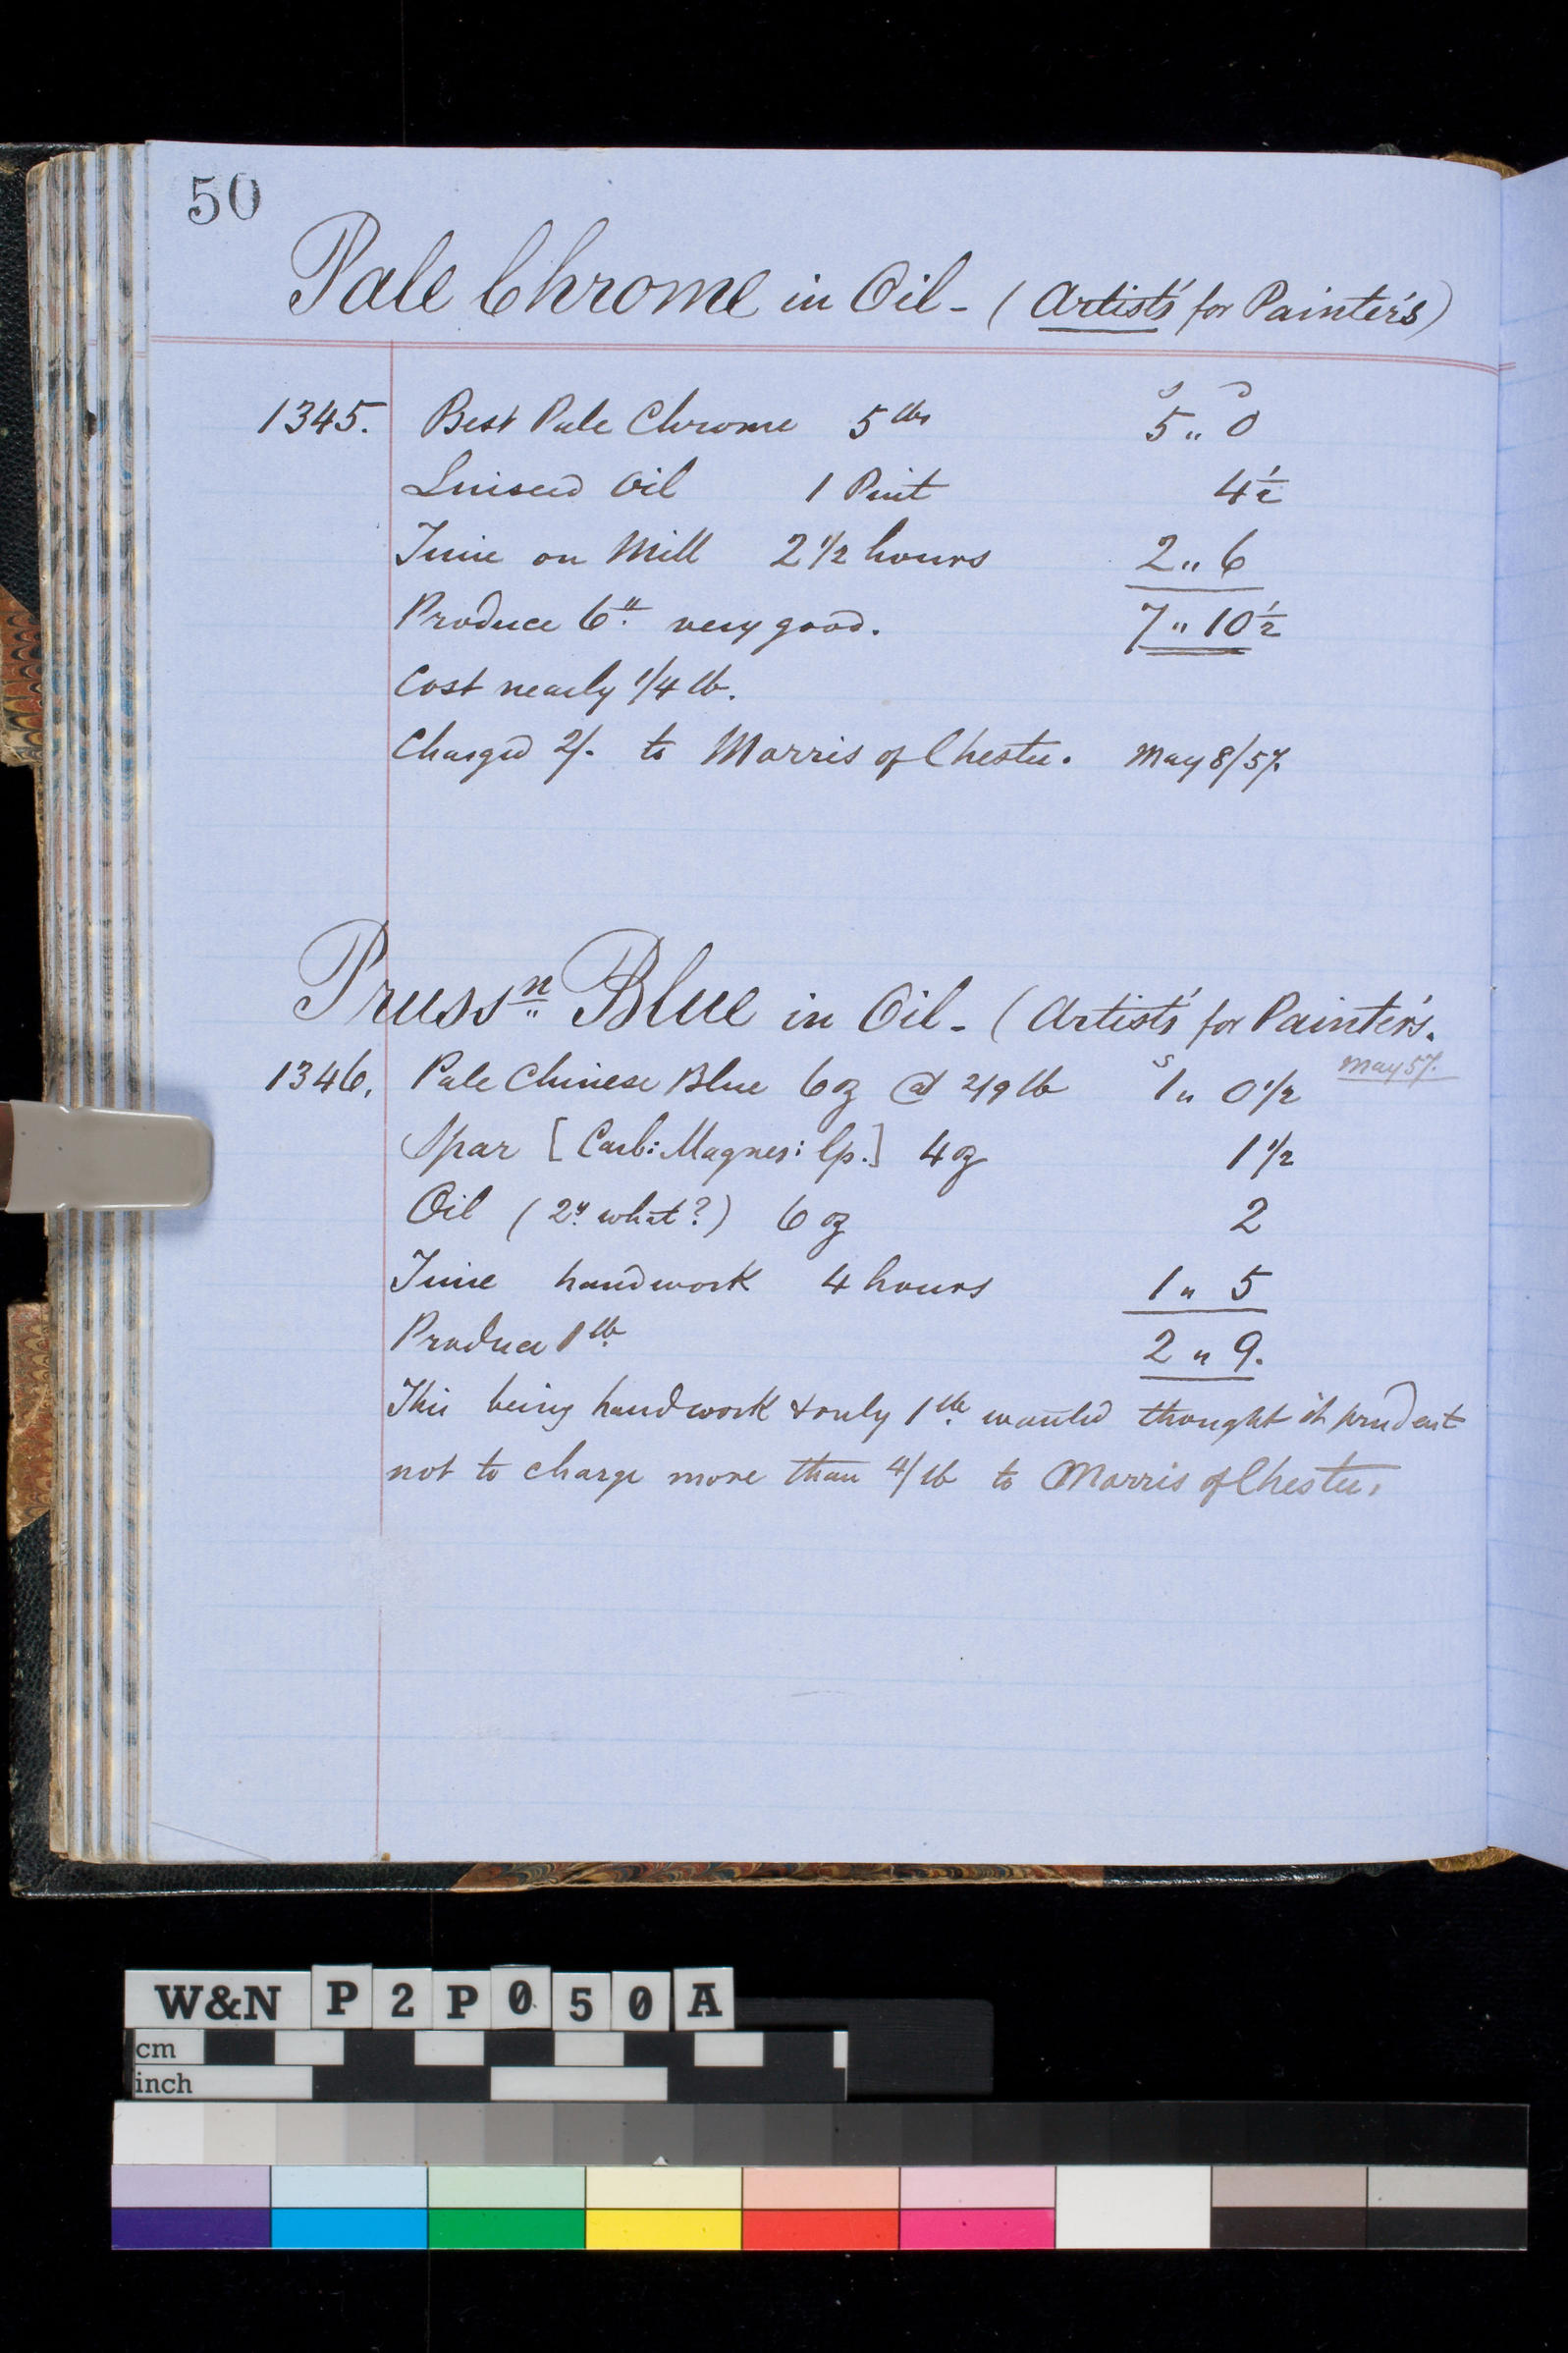 50
Pale Chrome in Oil - (Artists' for Painter's)
s d
1345. Best Pale Chrome 5 lbs 5 " 0
Linseed Oil 1 Pint 4½
Time on Mill 2 1/2 hours 2 " 6
Produce 6 lb. very good. 7 " 10½
Cost nearly 1/4 lb.
Charged 2/- to Morris of Chester. May 8/57.
Prussn Blue in Oil - (Artists' for Painter's.
May 57.
s
1346. Pale Chinese Blue 6 oz @ 2/9 lb 1 " 0 1/2
Spar [Carb: Magnes: Cp.] 4 oz 1 1/2
Oil (2y what?) 6 oz 2
Time handwork 4 hours 1 " 5
Produce 1 lb. 2 " 9.
This being handwork & only 1 lb. wanted thought it prudent
not to charge more than 4/ lb to Morris of Chester.
W&N P2P050A
cm
inch